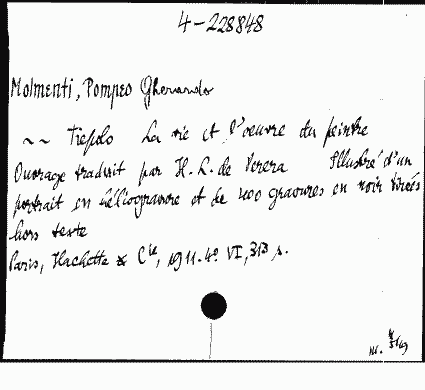 4-228848
Molmenti, Pompeo Gherardo
~~ Tiepolo La vie et l'oeuvre du peintre
Ouvrage traduit par H. L. de Perera Illustré d'un
portrait en héliogravure et de 400 gravures en noir tirées
hors texte
Paris, Hachette & Cie, 1911. 4° VI, 313 s.